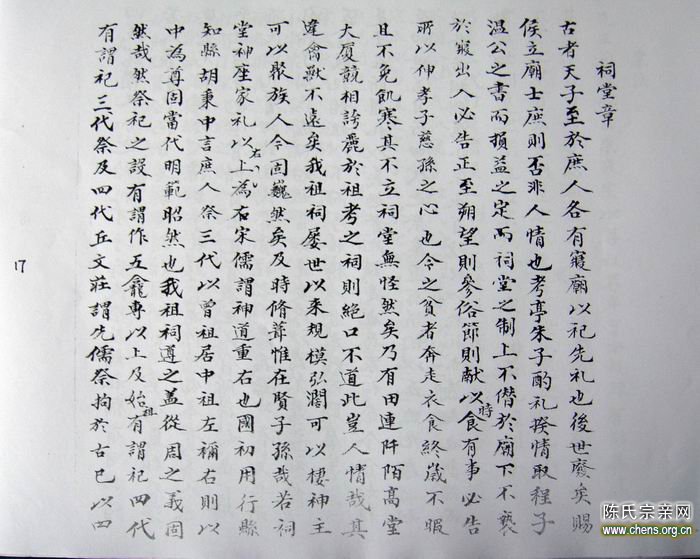 祠堂章
古者天子至於庶人各有寢廟以祀先礼也後世廢矣賜
侯立廟士庶則否非人情也考亭朱子酌礼揆情取程子
温公之書而損益之定為祠堂之制上不僭於廟下不褻
於寢出入必告正至朔望則參俗節則献以時食有事必告
所以伸孝子慈孫之心也今之貧者奔走衣食終歲不暇
且不免飢寒其不立祠堂無怪然矣乃有田連阡陌高堂
大厦競相誇麗於祖考之祠則絕口不道此豈人情哉其
違禽獸不遠矣我祖祠屡世以来規模弘濶可以棲神主
可以聚族人今固巍然矣及時脩葺惟在賢子孫哉若祠
堂神座家礼以右為上宋儒謂神道重右也國初用行縣
知縣胡秉中言庶人祭三代以曾祖居中祖左禰右則以
中為尊固當代明範昭然也我祖祠遵之盖從周之義固
然哉然祭祀之設有謂作五龕專以上及始祖有謂祀四代
有謂祀三代祭及四代丘文莊謂先儒祭拘於古已以四
17
陈氏宗亲网
www.chens.org.cn